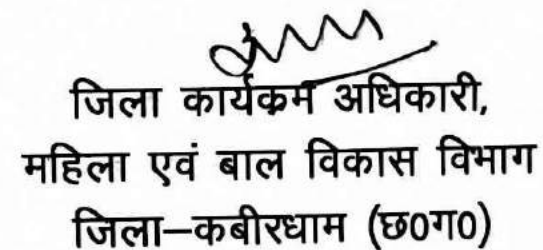 जिला कार्यक्रम अधिकारी,
महिला एवं बाल विकास विभाग
जिला–कबीरधाम (छ0ग0)